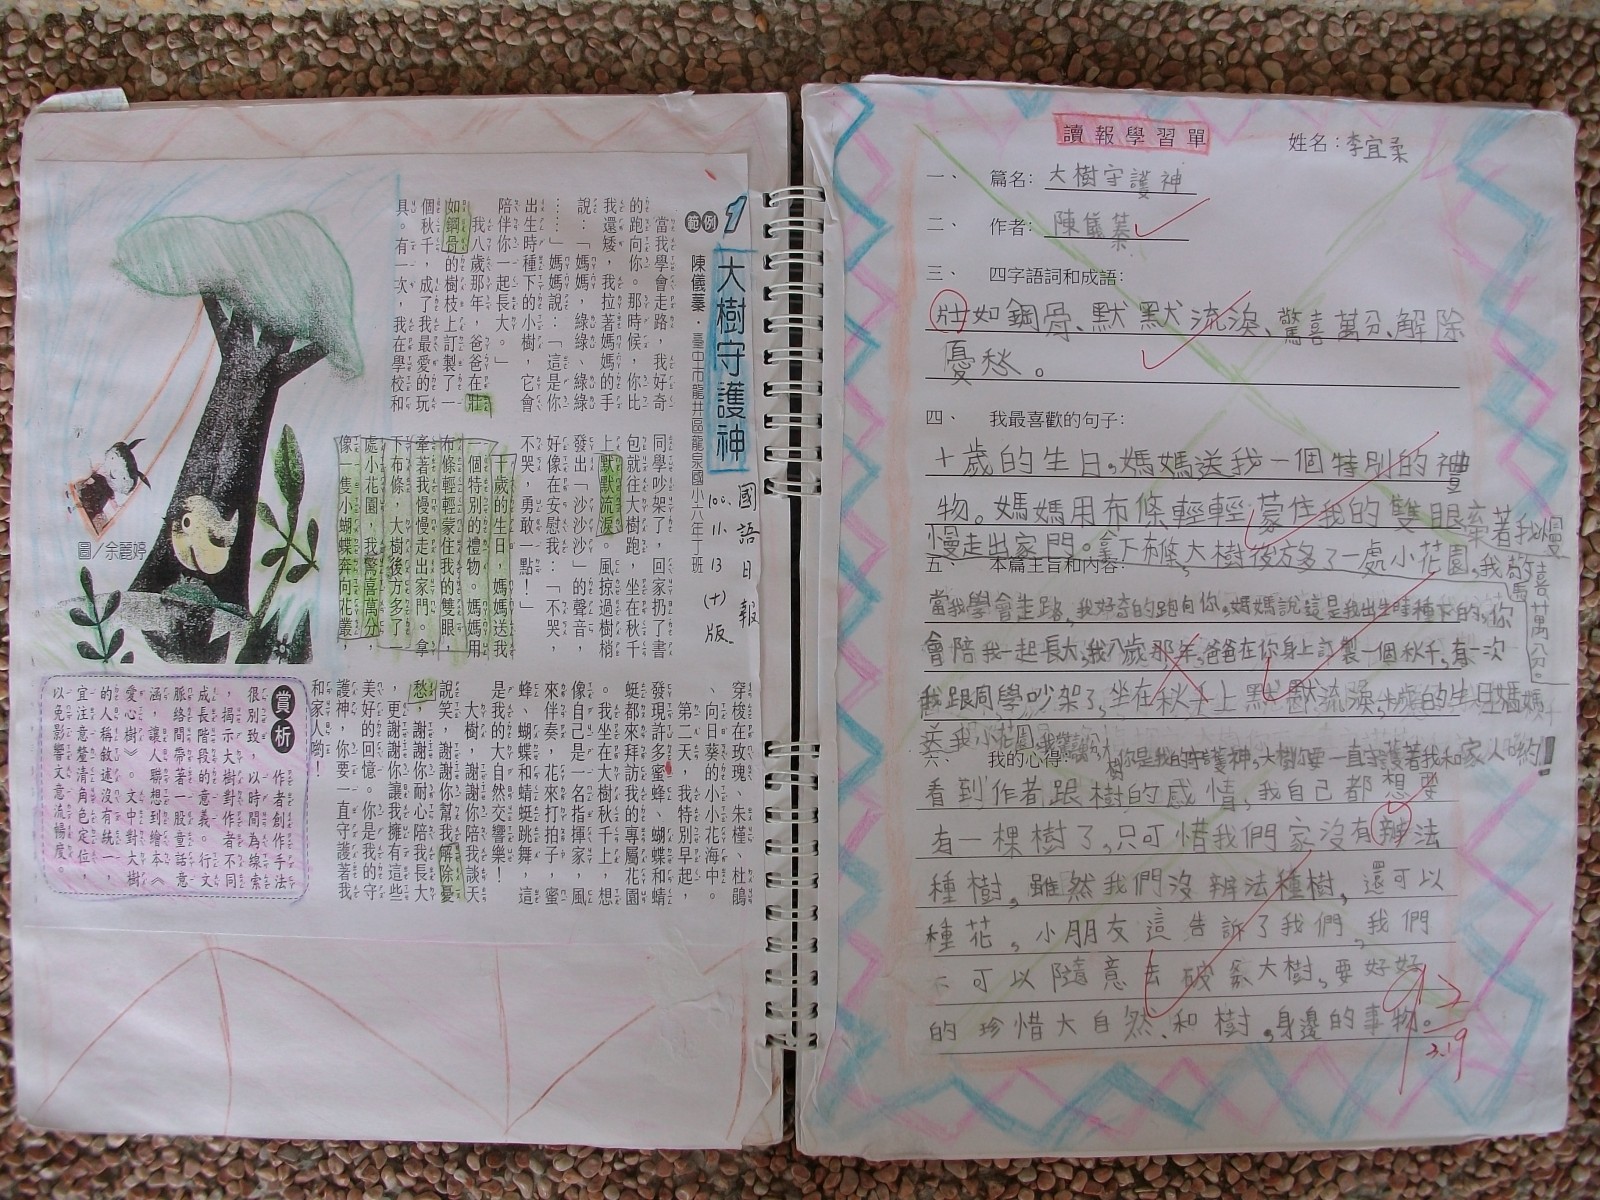 範例
1
大樹守護神
陳儀蓁・臺中市龍井區龍泉國小六年丁班
國語日報
100.11.13(十)版
當我學會走路,我好奇
的跑向你。那時候,你比
我還矮,我拉著媽媽的手
說:「媽媽,綠綠、綠綠
……」媽媽說:「這是你
出生時種下的小樹,它會
陪伴你一起長大。」
我八歲那年,爸爸在壯
如鋼骨的樹枝上訂製了一
個秋千,成了我最愛的玩
具。有一次,我在學校和
同學吵架了,回家扔了書
包就往大樹跑,坐在秋千
上默默流淚。風掠過樹梢
發出「沙沙沙」的聲音,
好像在安慰我:「不哭,
不哭,勇敢一點!」
十歲的生日,媽媽送我
一個特別的禮物。媽媽用
布條輕輕蒙住我的雙眼,
牽著我慢慢走出家門。拿
下布條,大樹後方多了一
處小花園,我驚喜萬分,
像一隻小蝴蝶奔向花叢,
穿梭在玫瑰、朱槿、杜鵑
、向日葵的小小花海中。
第二天,我特別早起,
發現許多蜜蜂、蝴蝶和蜻
蜓都來拜訪我的專屬花園
。我坐在大樹秋千上,想
像自己是一名指揮家,風
來伴奏,花來打拍子,蜜
蜂、蝴蝶和蜻蜓跳舞,這
是我的大自然交響樂!
大樹,謝謝你陪我談天
說笑,謝謝你幫我解除憂
愁,謝謝你耐心陪我長大
,更謝謝你讓我擁有這些
美好的回憶。你是我的守
護神,你要一直守護著我
和家人喲!
圖/余麗婷
賞析
作者創作手法
很別致,以時間為線索
,揭示大樹對作者不同
成長階段的意義。行文
脈絡間帶著一股童話意
涵,讓人聯想到繪本《
愛心樹》。文中對大樹
的人稱敘述沒有統一,
宜注意釐清角色定位,
以免影響文意流暢度。
讀報學習單
姓名:李宜柔
一、 篇名: 大樹守護神
二、 作者: 陳儀蓁
三、 四字語詞和成語:
壯如鋼骨、默默流淚、驚喜萬分、解除
憂愁。
四、 我最喜歡的句子:
十歲的生日,媽媽送我一個特別的禮
物。媽媽用布條輕輕蒙住我的雙眼牽著我慢
慢走出家門。拿下布條,大樹後方多了一處小花園,我驚喜萬分。
五、 本篇主旨和內容:
當我學會走路,我好奇的跑向你,媽媽說這是我出生時種下的,你
會陪我一起長大,我八歲那年,爸爸在你身上訂製一個秋千,有一次
我跟同學吵架了,坐在秋千上默默流淚,十歲的生日媽媽
送我小花園,我驚喜萬分,大樹你是我的守護神,大樹你要一直守護著我和家人喲!
六、 我的心得:
看到作者跟樹的感情,我自己都想要
有一棵樹了,只可惜我們家沒有辦法
種樹,雖然我們沒辦法種樹,還可以
種花,小朋友這告訴了我們,我們
不可以隨意去破壞大樹,要好好
的珍惜大自然、和樹,身邊的事物。
92
3.19